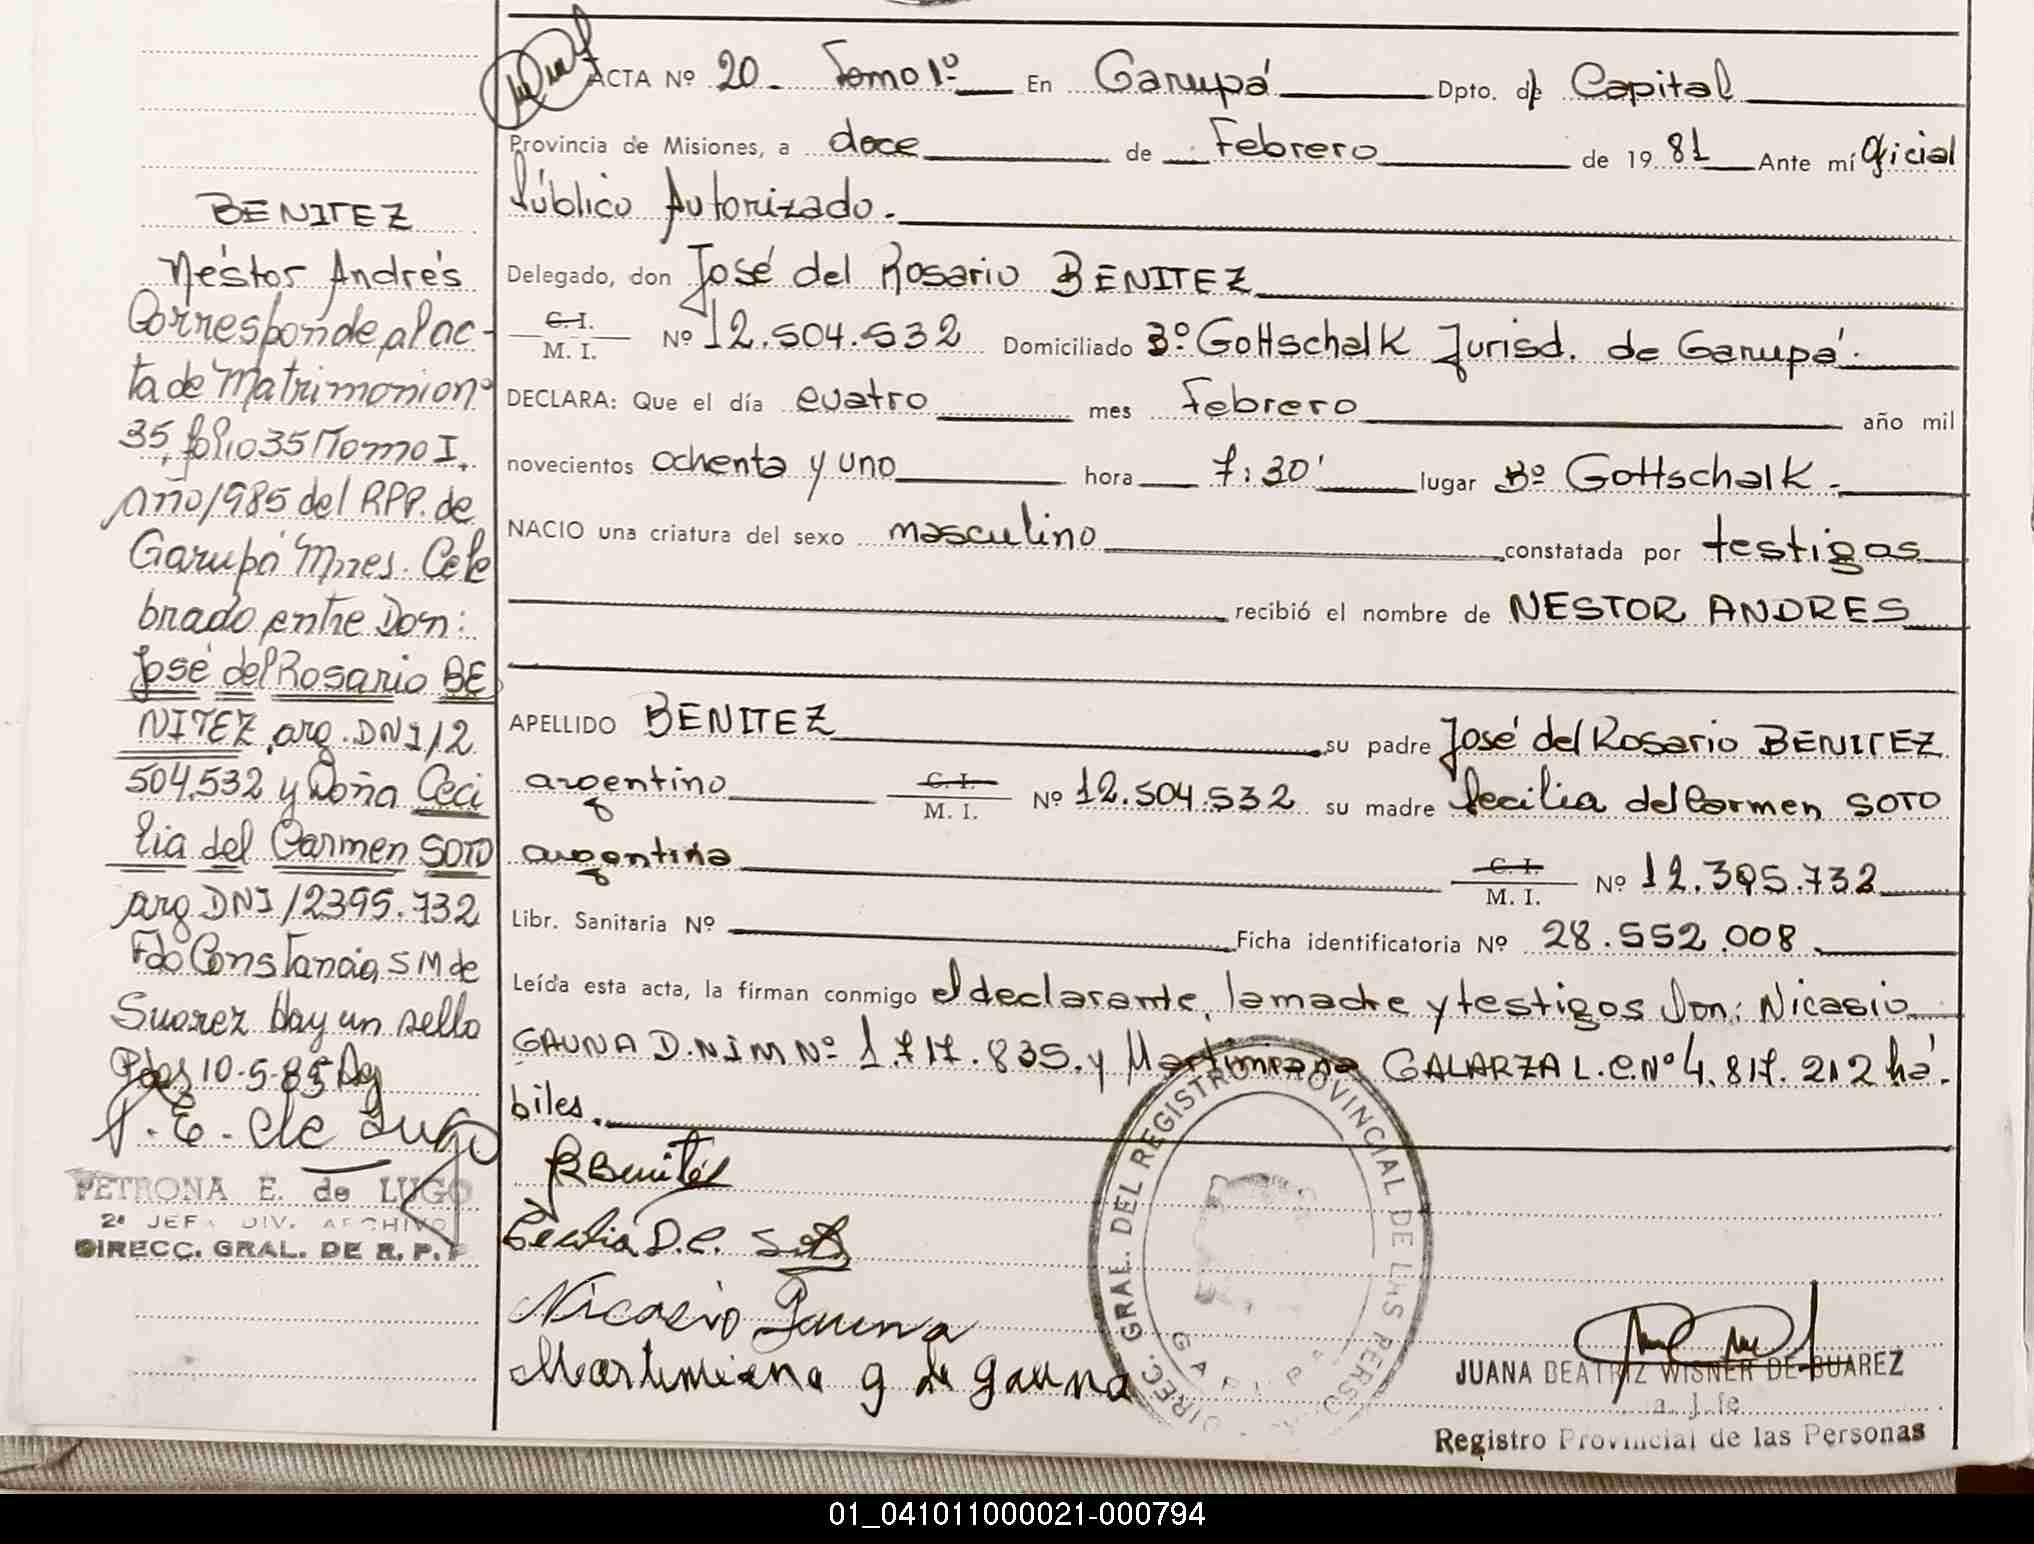 BENITEZ
Néstor Andrés
Corresponde al ac-
ta de Matrimonio nº
35, folio 35 Tomo I,
Año 1985 del RPP. de
Garupá Mnes. Cele
brado entre Don:
José del Rosario BE
NITEZ, arg. DNI 12
504.532 y Doña Ceci
lia del Carmen SOTO
arg DNI 12395.732
Fdo Constancia S M de
Suarez Hay un sello
Pdas 10-5-85
P. E. de Lugo
PETRONA E. de LUGO
2ª JEFA DIV. ARCHIVO
DIRECC. GRAL. DE R. P. P.
ACTA Nº 20 - Tomo 1º En Garupá Dpto. de Capital
Provincia de Misiones, a doce de Febrero de 19 81 Ante mí Oficial
Público Autorizado.
Delegado, don José del Rosario BENITEZ
C. I.
M. I. Nº 12.504.532 Domiciliado Bº Gottschalk Jurisd. de Garupá.
DECLARA: Que el día cuatro mes Febrero año mil
novecientos ochenta y uno hora 7:30' lugar Bº Gottschalk.
NACIO una criatura del sexo masculino constatada por testigos
recibió el nombre de NESTOR ANDRES
APELLIDO BENITEZ su padre José del Rosario BENITEZ
argentino C. I. M. I. Nº 12.504.532 su madre Cecilia del Carmen SOTO
argentina C. I. M. I. Nº 12.395.732
Libr. Sanitaria Nº Ficha identificatoria Nº 28.552.008.
Leída esta acta, la firman conmigo el declarante, la madre y testigos Don: Nicasio
GAUNA D.NIM Nº 1.717.835. y Martimiana GALARZA L.C.Nº 4.817.212 há-
biles.
R Benitez
Cecilia D.C. Soto
Nicasio Gauna
Martimiana g de gauna
DIREC. GRAL. DEL REGISTRO PROVINCIAL DE LAS PERSONAS
GARUPA
JUANA BEATRIZ WISNER DE SUAREZ
Registro Provincial de las Personas
01_041011000021-000794